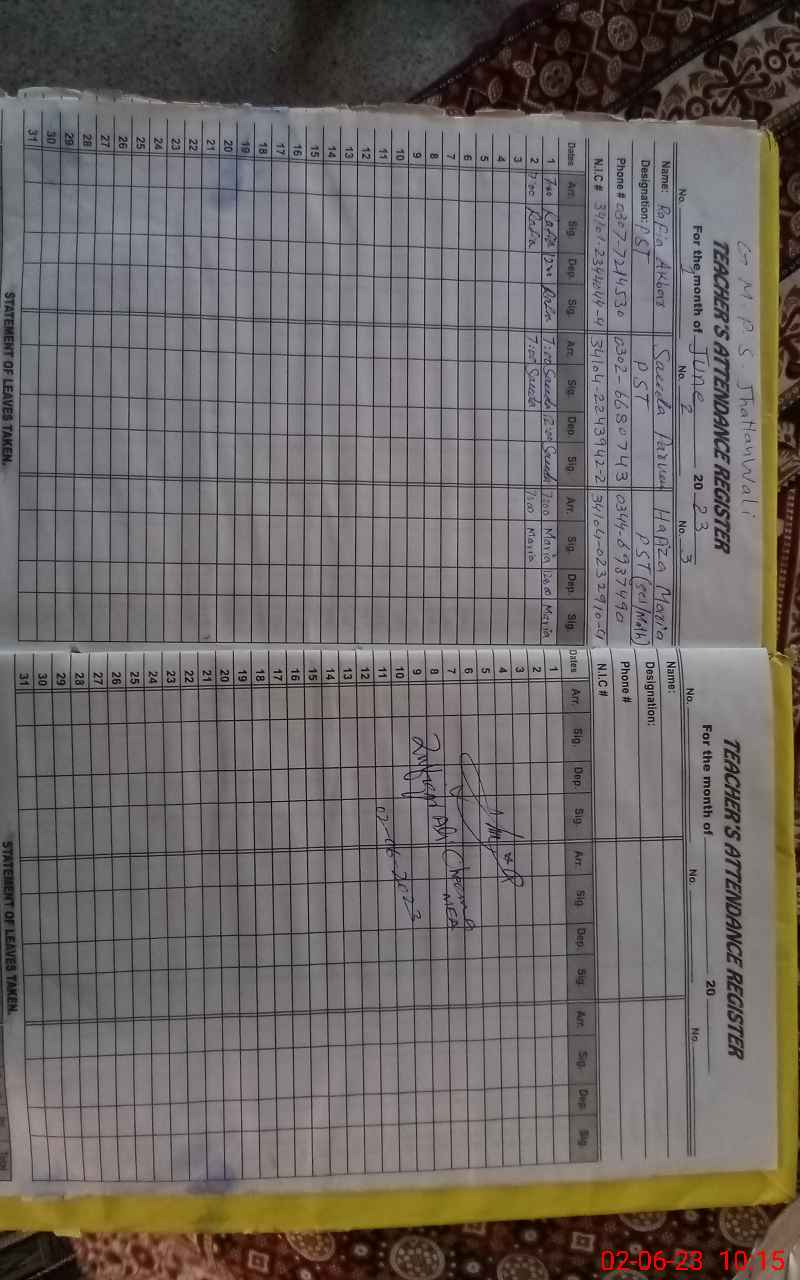 G M. P. S. Jhattanwali
TEACHER'S ATTENDANCE REGISTER
For the month of June 2023
No. 1 No. 2 No. 3
Name: Rafia Akbar Saeeda Parveen Hafiza Maria
Designation: PST PST PST (Sci/Math)
Phone # 0307-7214530 0302-6680743 0344-6987490
N.I.C # 34101-2344044-4 34104-2243942-2 34104-0232910-4
Dates Arr. Sig. Dep. Sig. Arr. Sig. Dep. Sig. Arr. Sig. Dep. Sig.
1 7:00 Rafia 12:00 Rafia 7:00 Saeeda 12:00 Saeeda 7:00 Maria 12:00 Maria
2 7:00 Rafia 7:00 Saeeda 7:00 Maria
3
4
5
6
7
8
9
10
11
12
13
14
15
16
17
18
19
20
21
22
23
24
25
26
27
28
29
30
31
STATEMENT OF LEAVES TAKEN.
TEACHER'S ATTENDANCE REGISTER
For the month of 20
No. No. No.
Name:
Designation:
Phone #
N.I.C #
Dates Arr. Sig. Dep. Sig. Arr. Sig. Dep. Sig. Arr. Sig. Dep. Sig.
1
2
3
4
5
6
7
8
9
10
11
12
13
14
15
16
17
18
19
20
21
22
23
24
25
26
27
28
29
30
31
Ali Cheema
MEA
02-06-2023
STATEMENT OF LEAVES TAKEN.
Total
02-06-23 10:15